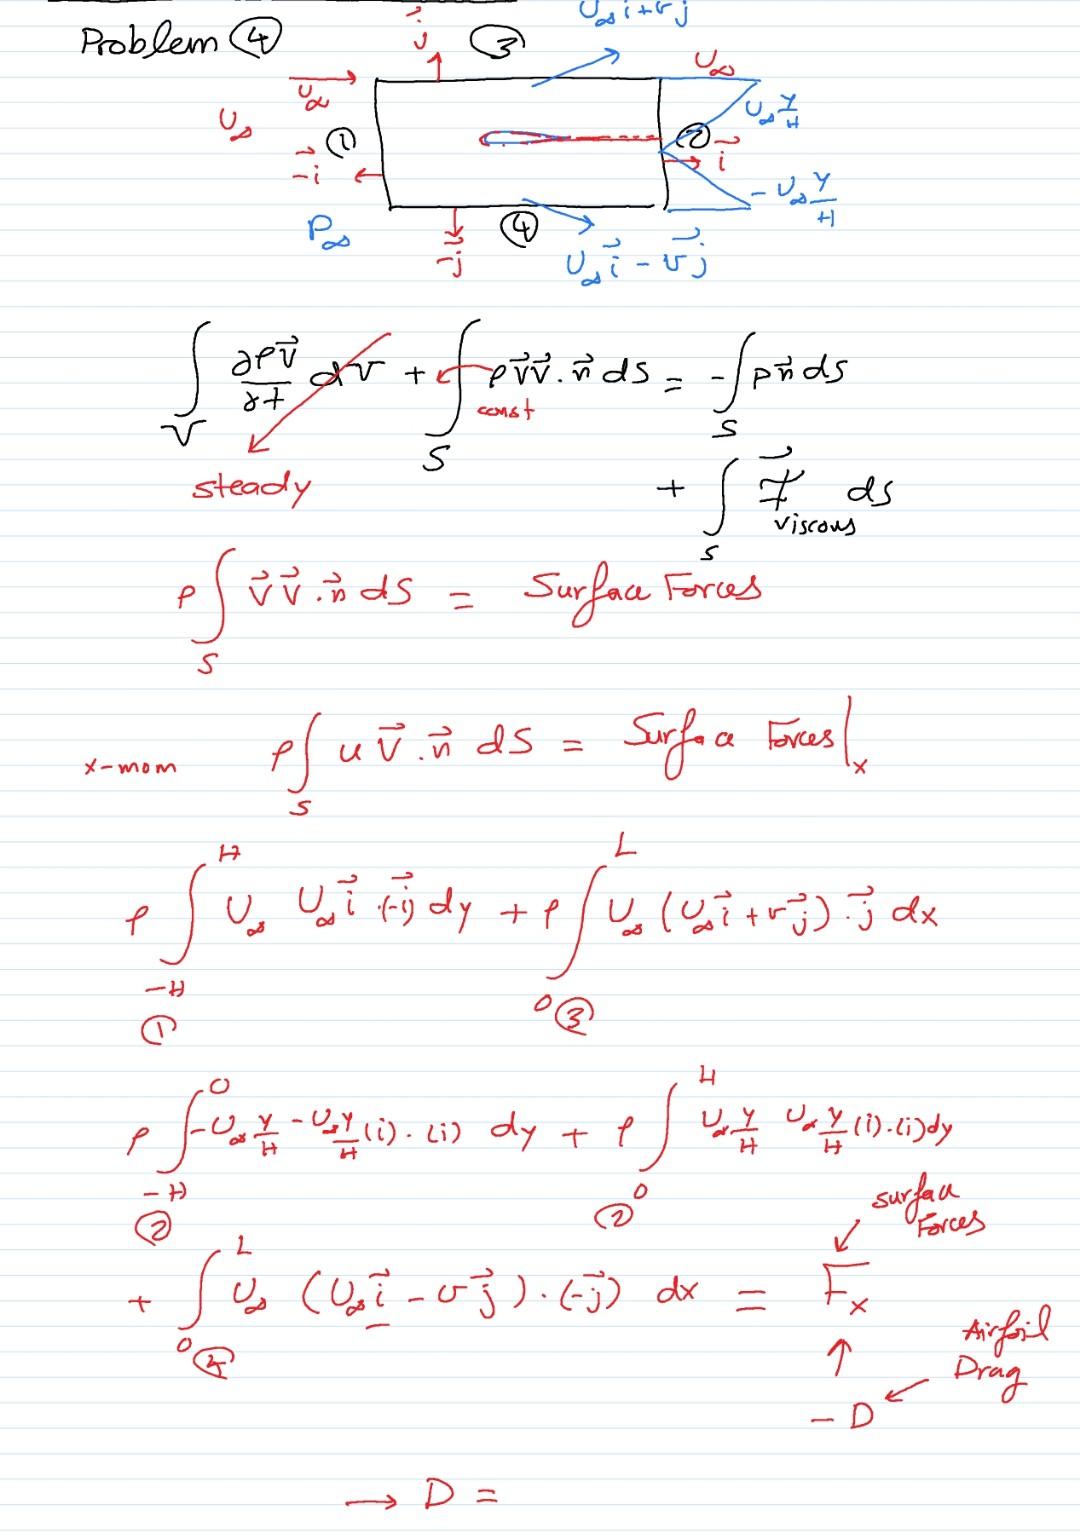 Problem ④
j
③
U∞ i + v j
U∞
U∞
U∞ y/H
U∞
①
②
-i
i
- U∞ y/H
P∞
④
-j
U∞ i - v j
∫_V ∂ρV/∂t dV + ∫_S ρ V V . n ds = - ∫_S P n ds
const
steady
+ ∫_S F viscous ds
ρ ∫_S V V . n ds = Surface Forces
x-mom ρ ∫_S u V . n ds = Surface Forces|x
ρ ∫_{-H}^{H} U∞ U∞ i . (-i) dy + ρ ∫_0^L U∞ (U∞ i + v j) . j dx
① ③
ρ ∫_{-H}^{0} -U∞ y/H - U∞ y/H (i) . (i) dy + ρ ∫_0^H U∞ y/H U∞ y/H (i) . (i) dy
② ②
surface Forces
+ ∫_0^L U∞ (U∞ i - v j) . (-j) dx = Fx
④
Airfoil Drag
- D
→ D =